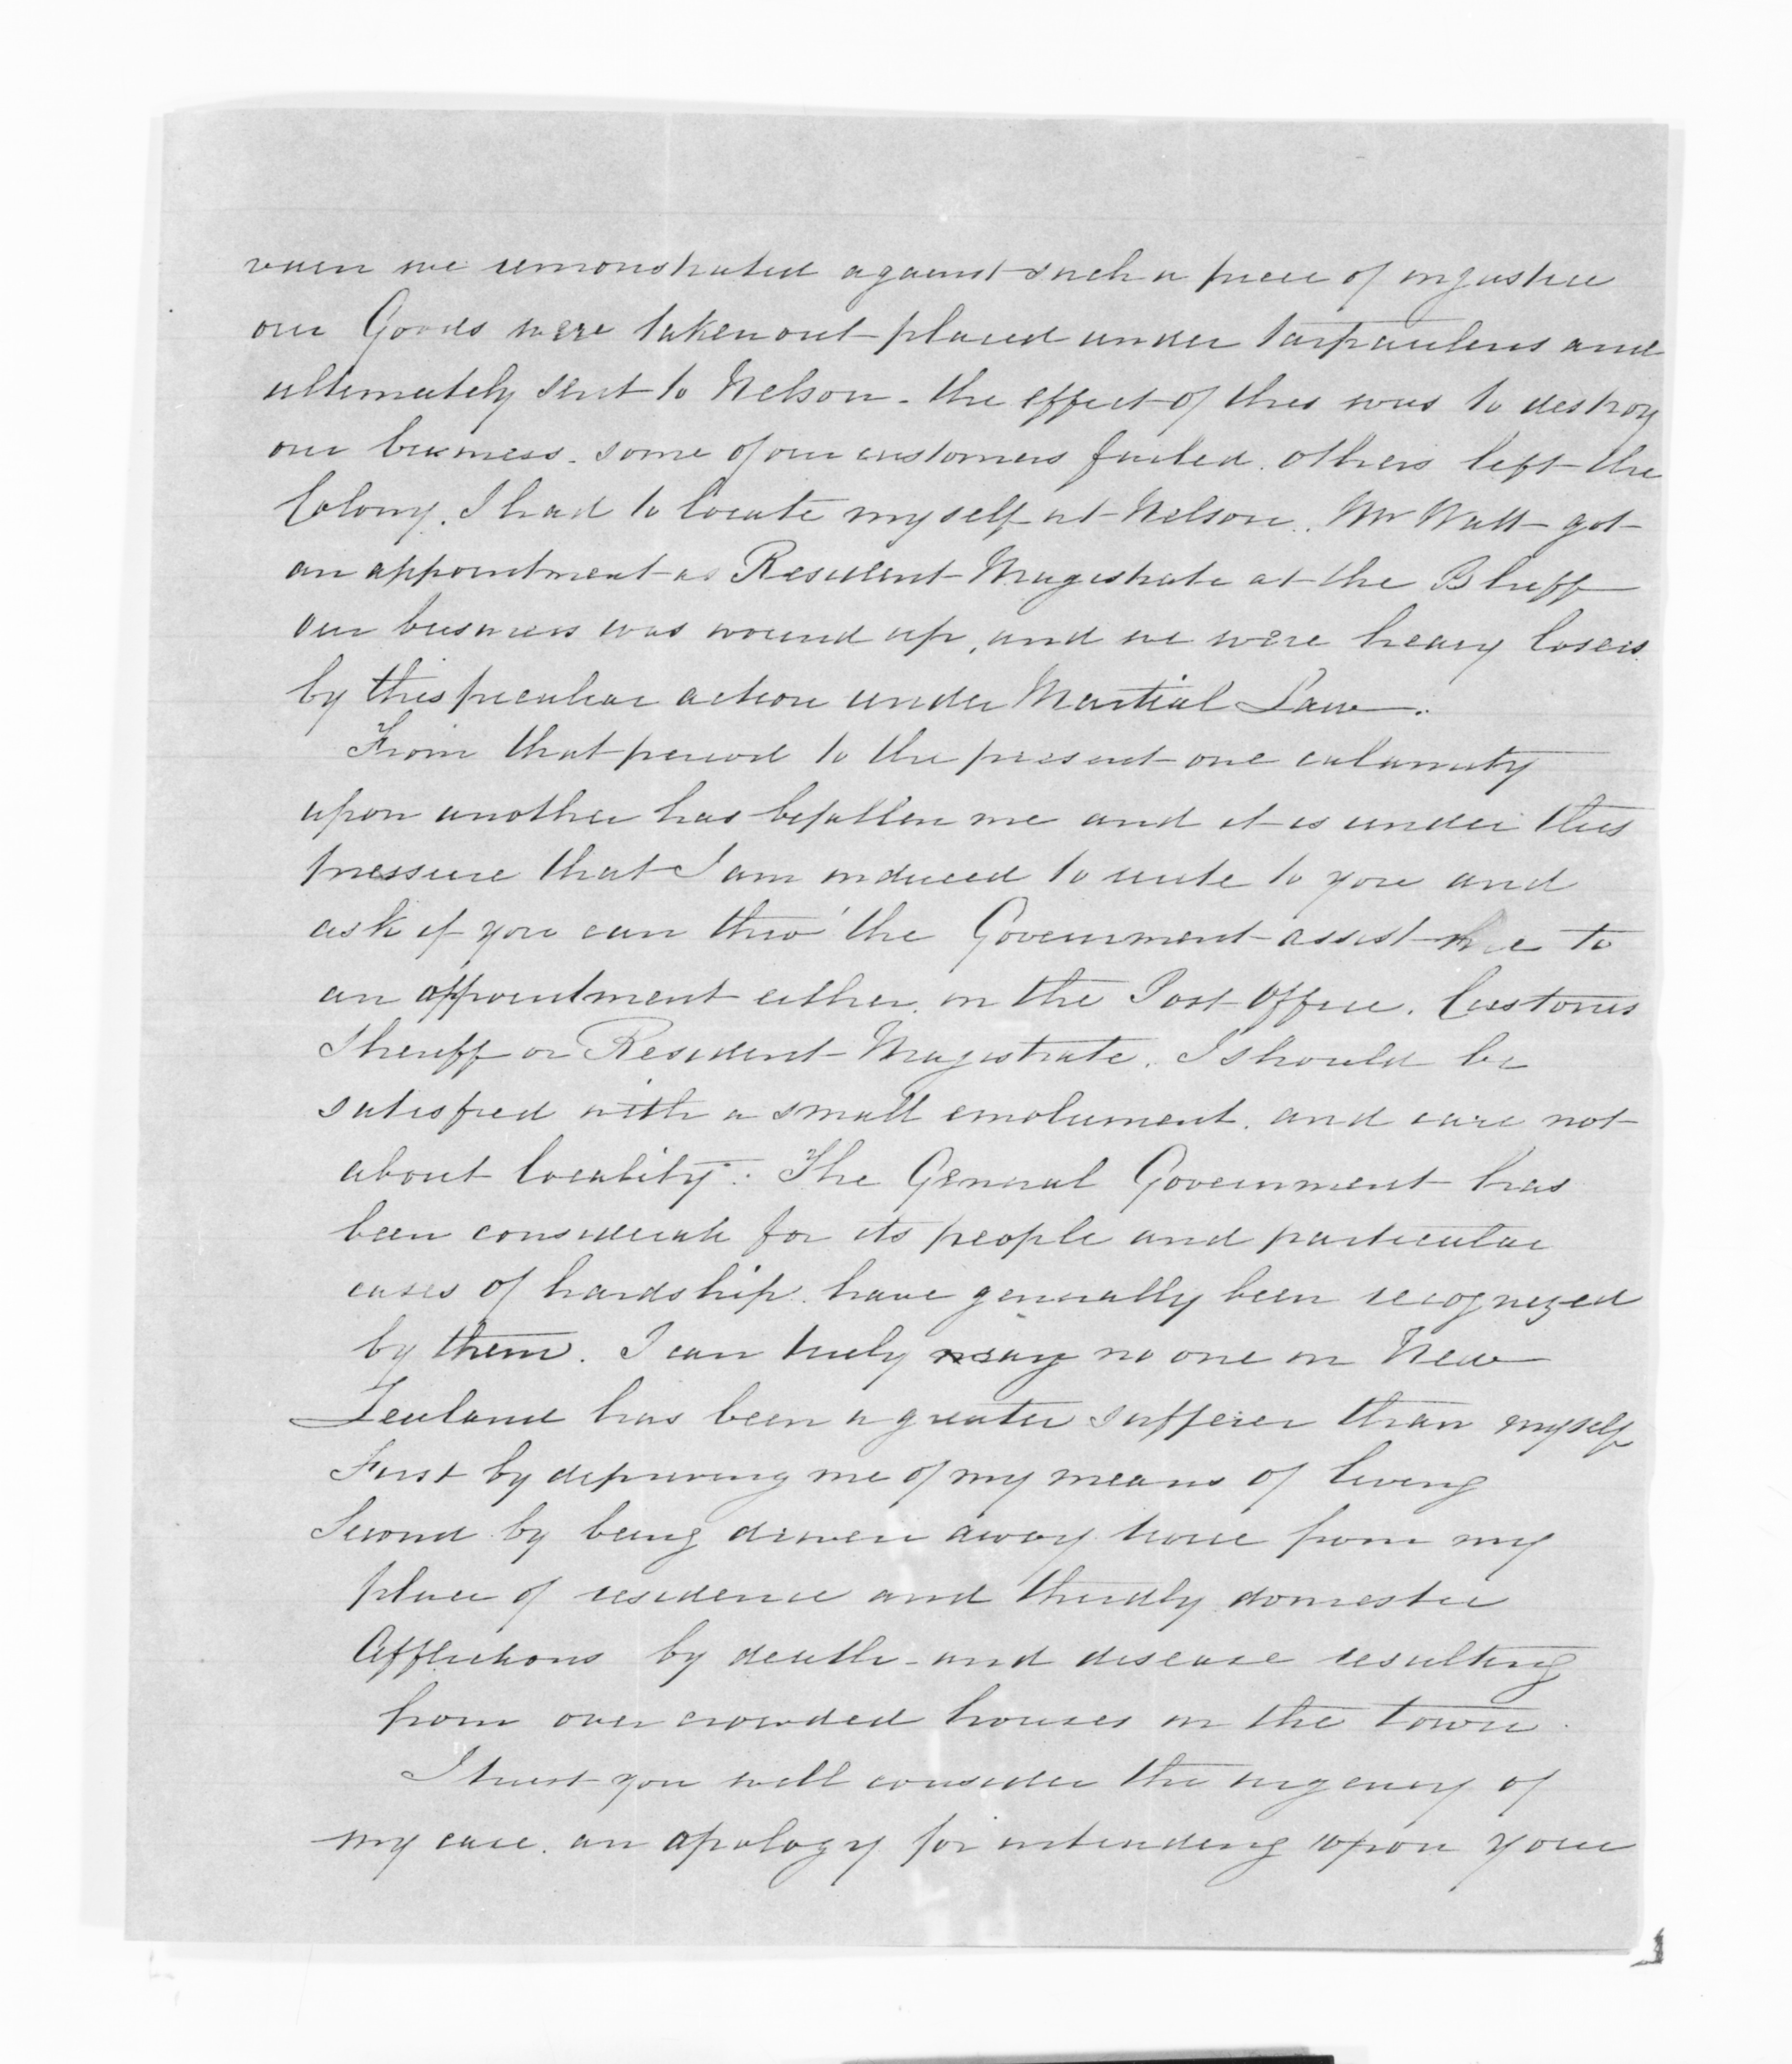 when we remonstrated against such a piece of injustice
our Goods were taken out placed under tarpaulens and
ultimately sent to Nelson - the effect of this was to destroy
our business. some of our customers failed. others left the
Colony. I had to locate myself at Nelson. Mr Watt got
an appointment as Resident Magistrate at the Bluff
our business was wound up, and we were heavy losers
by this peculiar action under Martial Law.
From that period to the present one calamity
upon another has befallen me and it is under this
pressure that I am induced to write to you and
ask if you can thro' the Government assist me to
an appointment either in the Post Office. Customs
Sheriff or Resident Magistrate. I should be
satisfied with a small emolument. and care not
about locality. The General Government has
been considerate for its people and particular
cases of hardship. have generally been recognized
by them. I can truly say no one in New
Zealand has been a greater sufferer than myself
First by depriving me of my means of living
Second by being driven away twice from my
place of residence and thirdly domestic
Afflictions by death - and disease resulting
from over crowded houses in the town.
I trust you will consider the urgency of
my case. an apology for intruding upon your